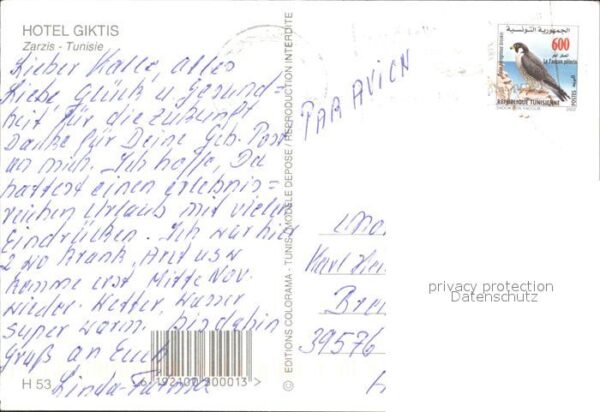 HOTEL GIKTIS
Zarzis - Tunisie
Lieber Kalle, alles
Liebe, Glück u. Gesund=
heit für die Zukunft
Danke für Deine Geb. Post
an mich. Ich hoffe, Du
hattest einen erlebnis=
reichen Urlaub mit vielen
Eindrücken. Ich war hier
2 Wo krank, Arzt usw
komme erst Mitte Nov.
wieder. Wetter, Wasser
super warm. Bis dahin
Gruß an Euch
Linda-Fatma
H 53
6 192107 300013
© EDITIONS COLORAMA - TUNIS (MODELE DEPOSE / REPRODUCTION INTERDITE
PAR AVION
الجمهورية التونسية
600
Le Faucon pèlerin
REPUBLIQUE TUNISIENNE
POSTES
البريد
2002
Karl Hei
39576
privacy protection
Datenschutz